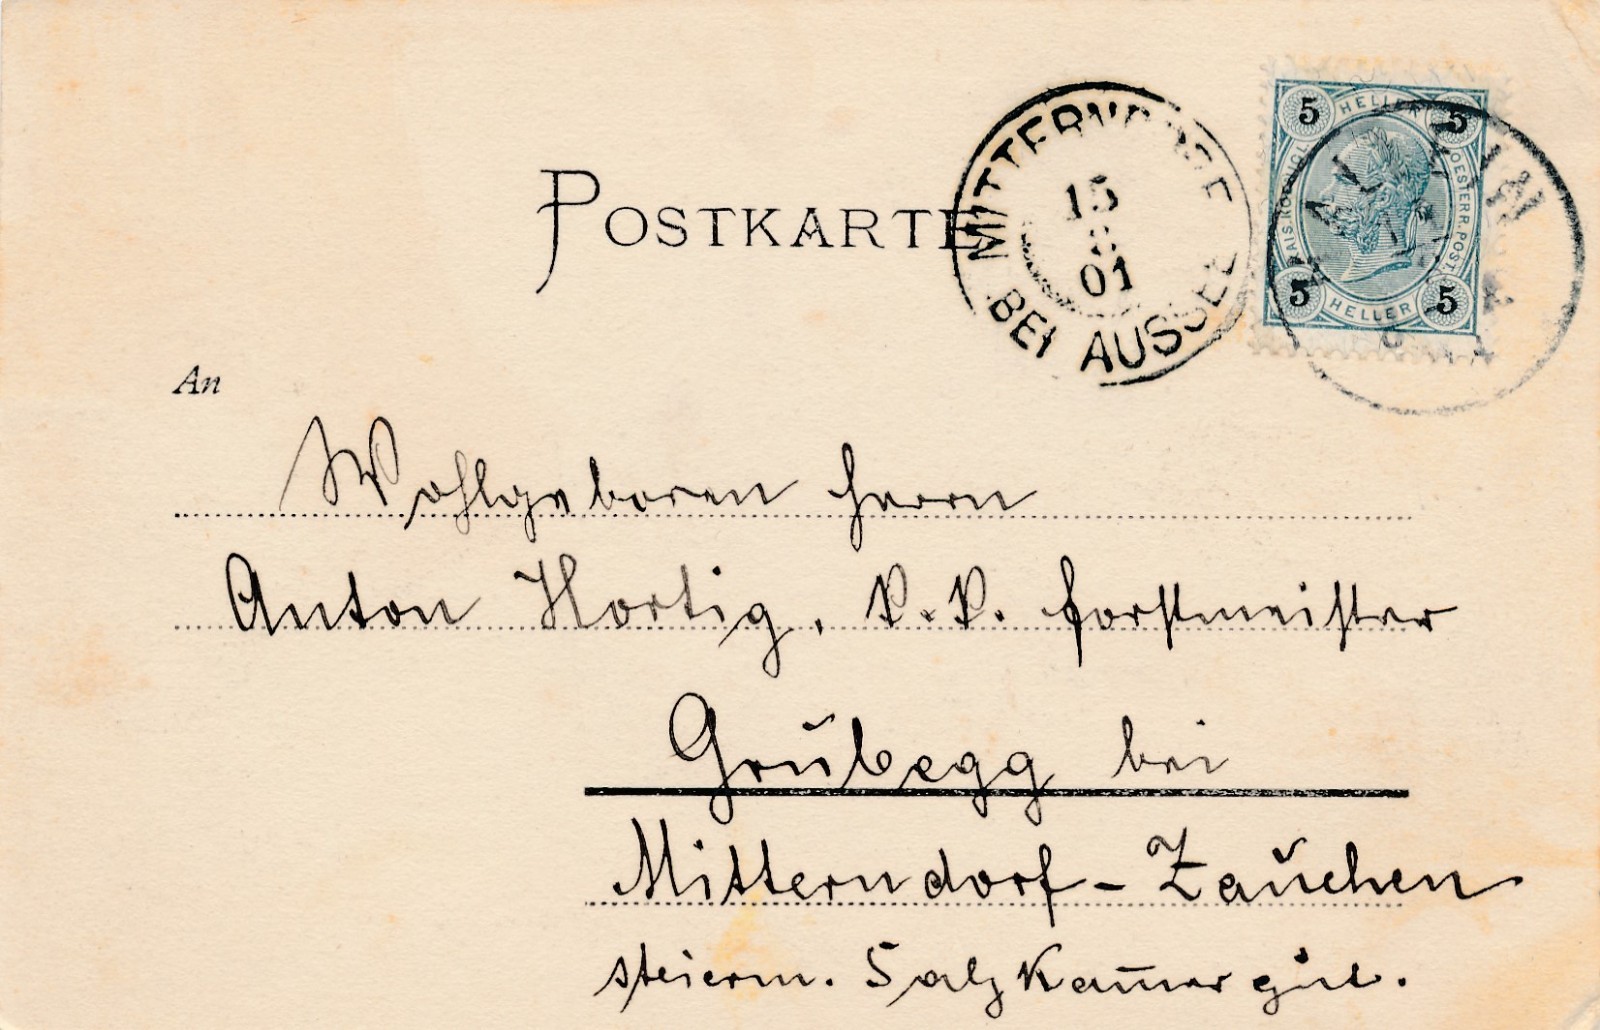 POSTKARTE
MITTERNDORF
BEI AUSSEE
15
01
5 HELLER 5
KAIS. KOENIGL. OESTERR. POST.
5 HELLER 5
An
Wohlgeboren Herrn
Anton Hortig, k. k. Forstmeister
Grubegg bei
Mitterndorf - Zauchen
steierm. Salzkam̅ergut.